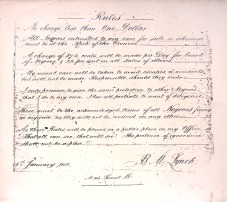 Rules
No charge less than One Dollar
All Negroes entrusted to my care for sale or otherwise
must be at the Risk of the Owners.
A charge of 37½ cents will be made per Day for board
of Negroes & 2½ pr cent on all Sales of Slaves.
My usual care will be taken to avoid escapes or accidents
but will not be made Responsible should they occur.
I only promise to give the same protection to other Negroes
that I do to my own. I bar all pretexts to want of diligence
These must be the acknowledged terms of all Negroes found
in my care, as they will not be received on any other.
As these Rules will be placed in a public place in my Office
that all can see, that will see. The pretence of ignorance
shall not be a plea.
1st January, 1858.
B. M. Lynch
Locust St.